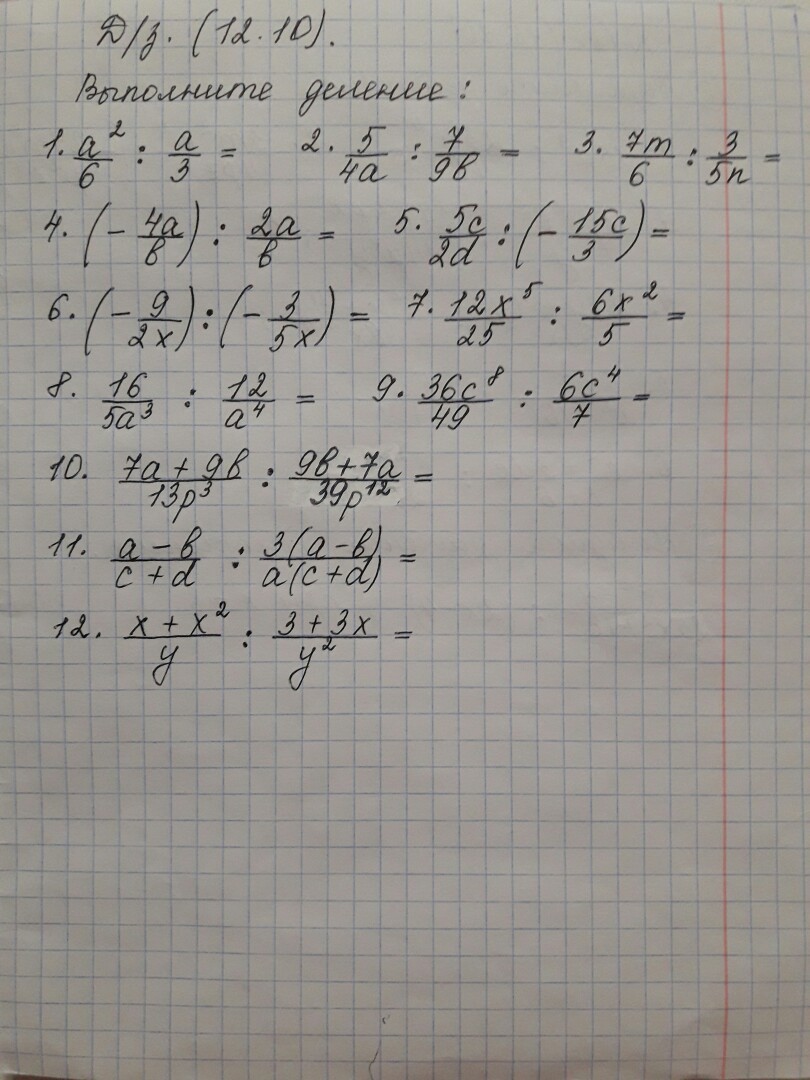 Д/з. (12.10).
Выполните деление:
1. a²/6 : a/3 = 2. 5/4a : 7/9b = 3. 7m/6 : 3/5n =
4. (- 4a/b) : 2a/b = 5. 5c/2d : (- 15c/3) =
6. (- 9/2x) : (- 3/5x) = 7. 12x⁵/25 : 6x²/5 =
8. 16/5a³ : 12/a⁴ = 9. 36c⁸/49 : 6c⁴/7 =
10. 7a + 9b/13p³ : 9b+7a/39p¹² =
11. a - b/c + d : 3(a-b)/a(c+d) =
12. x + x²/y : 3 + 3x/y² =